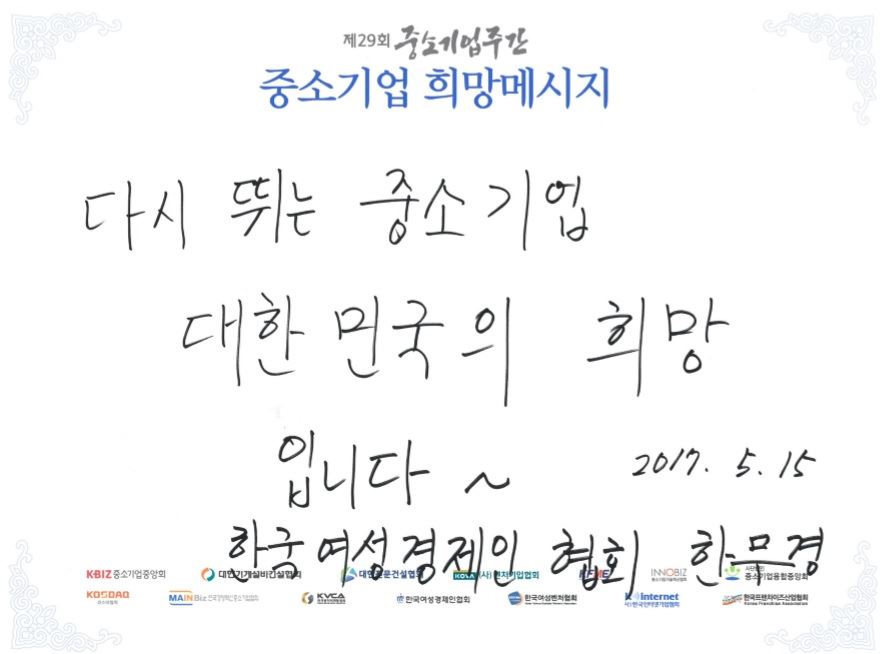 제29회 중소기업주간
중소기업 희망메시지
다시 뛰는 중소기업
대한민국의 희망
입니다 ~ 2017. 5. 15
한국여성경제인협회 한무경
K·BIZ 중소기업중앙회 대한기계설비건설협회 대한전문건설협회 (사)벤처기업협회 INNOBIZ 중소기업융합중앙회
KOSDAQ 코스닥협회 MAINBiz KVCA 한국여성경제인협회 한국여성벤처협회 internet 한국인터넷기업협회 한국프랜차이즈산업협회
Korea Franchise Association